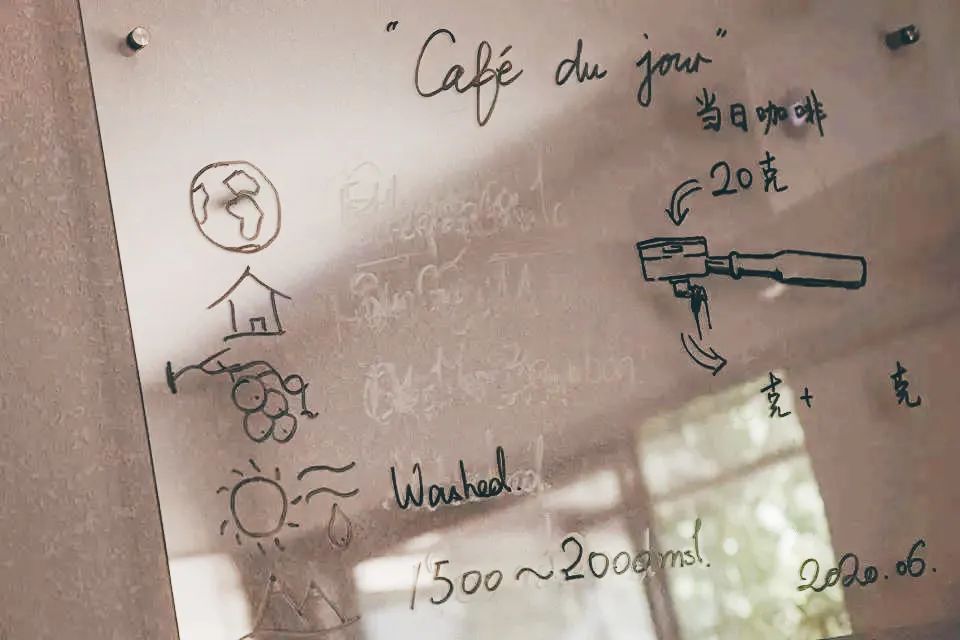 "Café du jour"
当日咖啡
20克
克+ 克
Washed.
1500~2000msl.
2020.06.